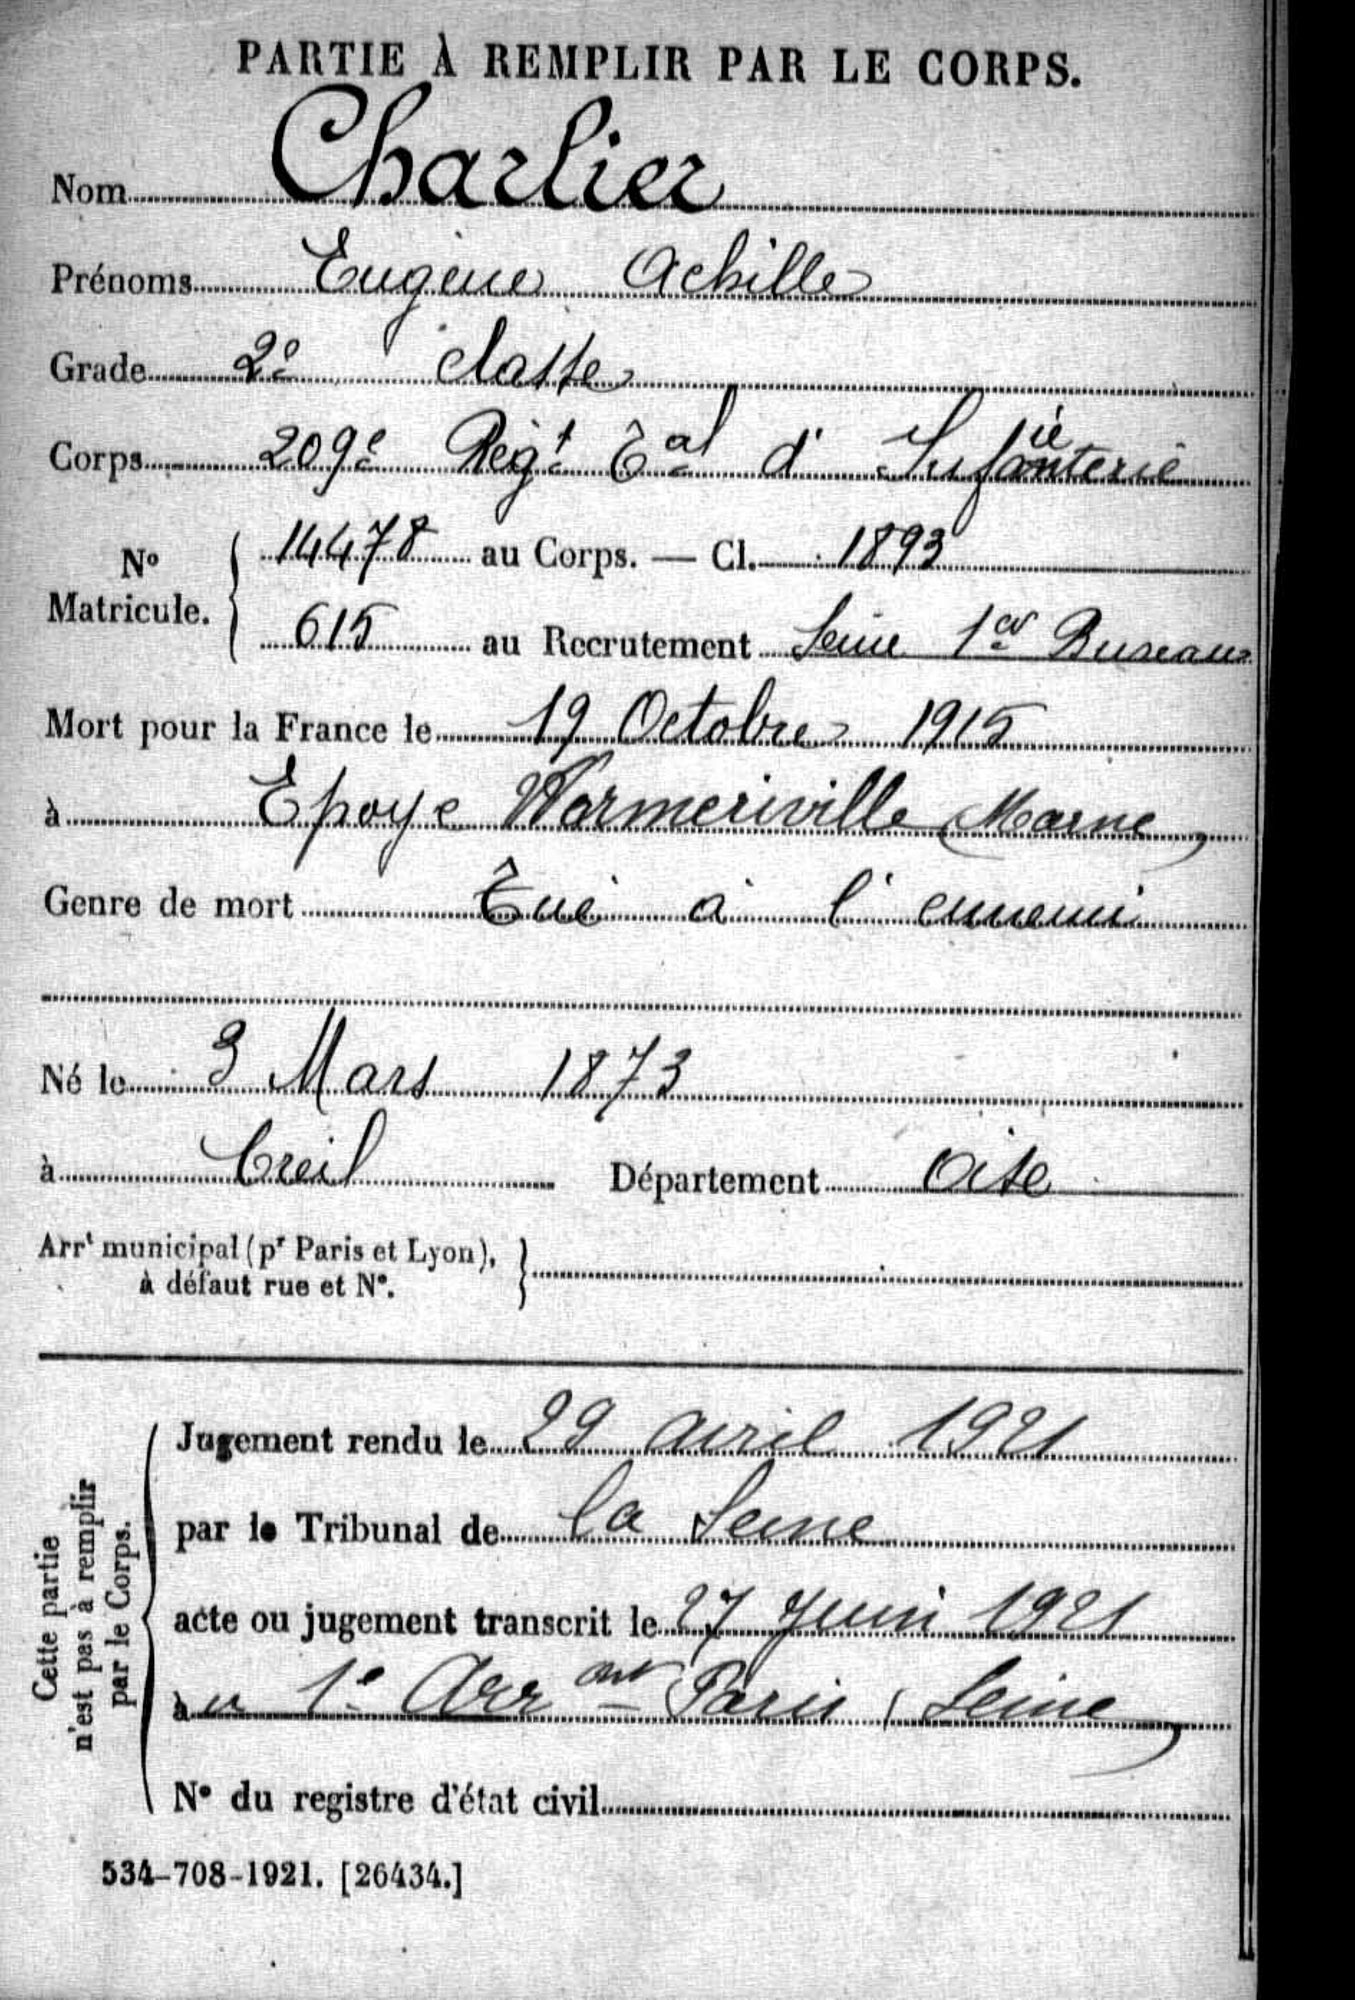 PARTIE À REMPLIR PAR LE CORPS.
Nom Charlier
Prénoms Eugène Achille
Grade 2e classe
Corps 209e Régt Tal d'Infanterie
No Matricule. 14478 au Corps. — Cl. 1893
615 au Recrutement Seine 1er Bureau
Mort pour la France le 19 Octobre 1915
à Epoye Warmeriville (Marne)
Genre de mort Tué à l'ennemi
Né le 3 Mars 1873
à Creil Département Oise
Arrt municipal (pr Paris et Lyon),
à défaut rue et No.
Cette partie
n'est pas à remplir
par le Corps.
Jugement rendu le 29 avril 1921
par le Tribunal de la Seine
acte ou jugement transcrit le 27 Juin 1921
au 1e Arront Paris (Seine)
No du registre d'état civil
534-708-1921. [26434.]